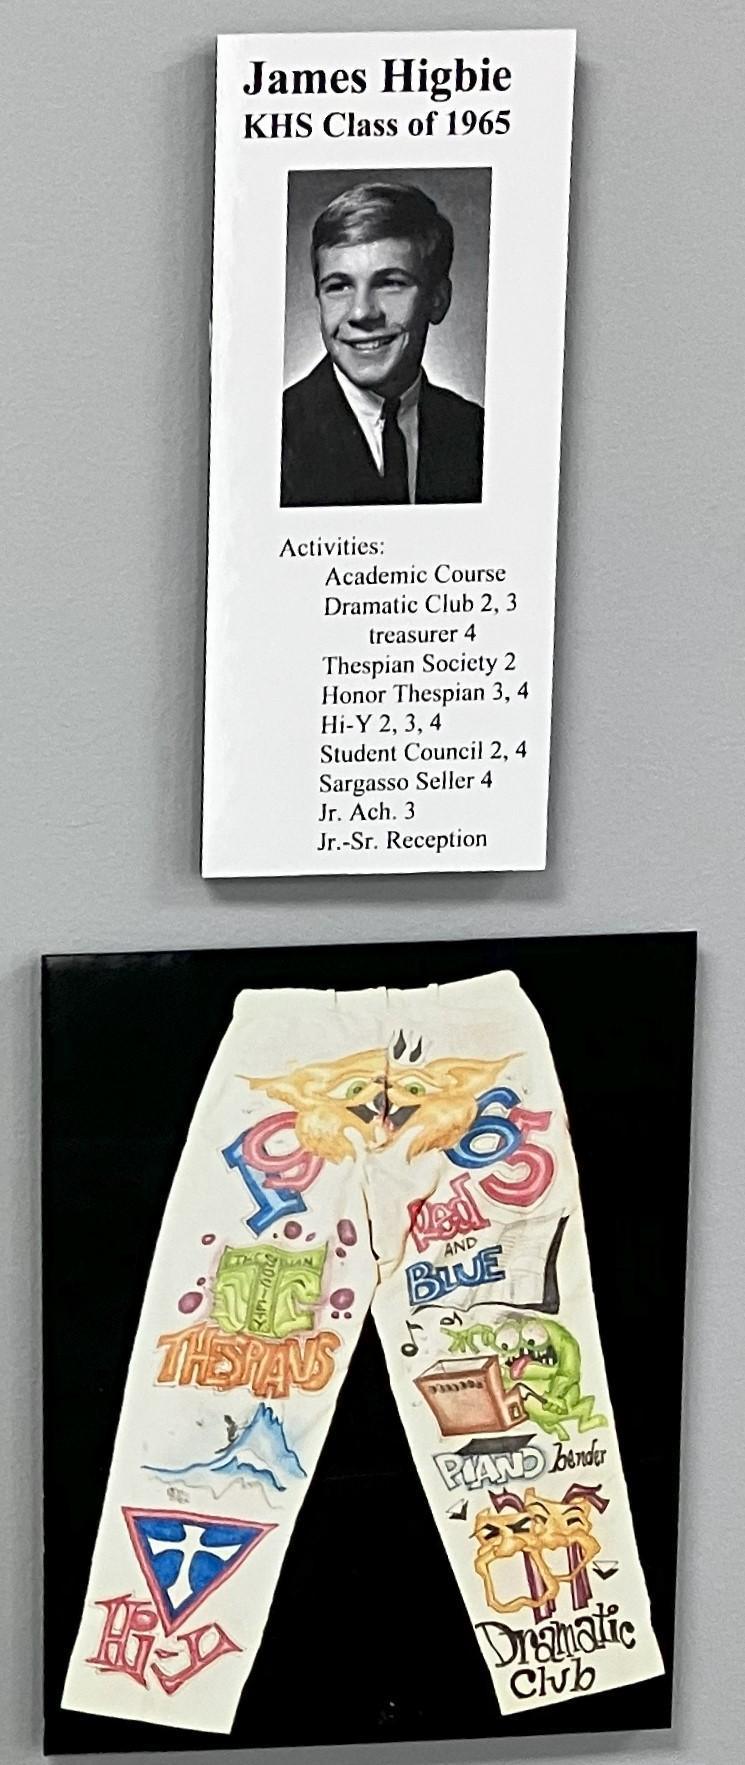 James Higbie
KHS Class of 1965
Activities:
Academic Course
Dramatic Club 2, 3
treasurer 4
Thespian Society 2
Honor Thespian 3, 4
Hi-Y 2, 3, 4
Student Council 2, 4
Sargasso Seller 4
Jr. Ach. 3
Jr.-Sr. Reception
1965
Red
AND
BLUE
THESPIANS
PIANO bender
Hi-y
Dramatic
Club